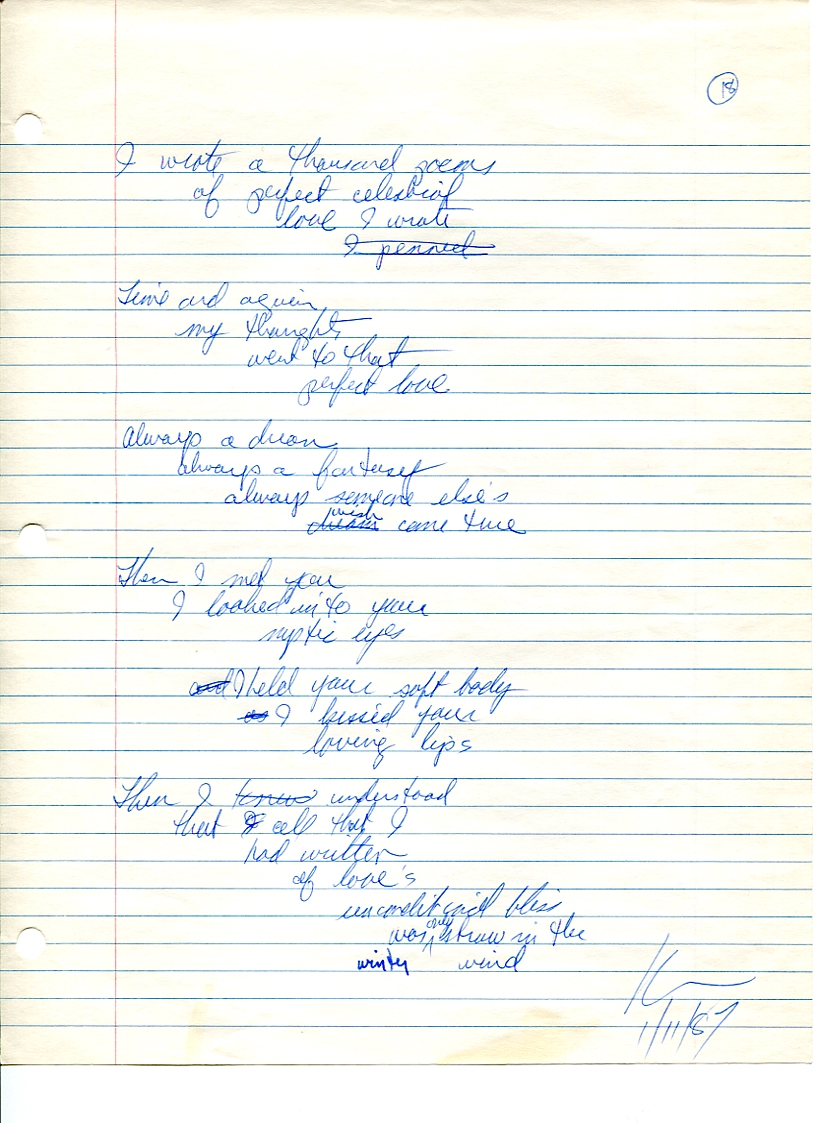 18
I wrote a thousand poems
of perfect celestial
love I wrote
I penned
Time and again
my thoughts
went to that
perfect love
Always a dream
always a fantasy
always someone else's
wish
dream come true
Then I met you
I looked into your
mystic eyes
and I held your soft body
as I kissed your
loving lips
Then I knew understood
that all that I
had written
of love's
unconditional bliss
only
was straw in the
winter wind
1/11/87